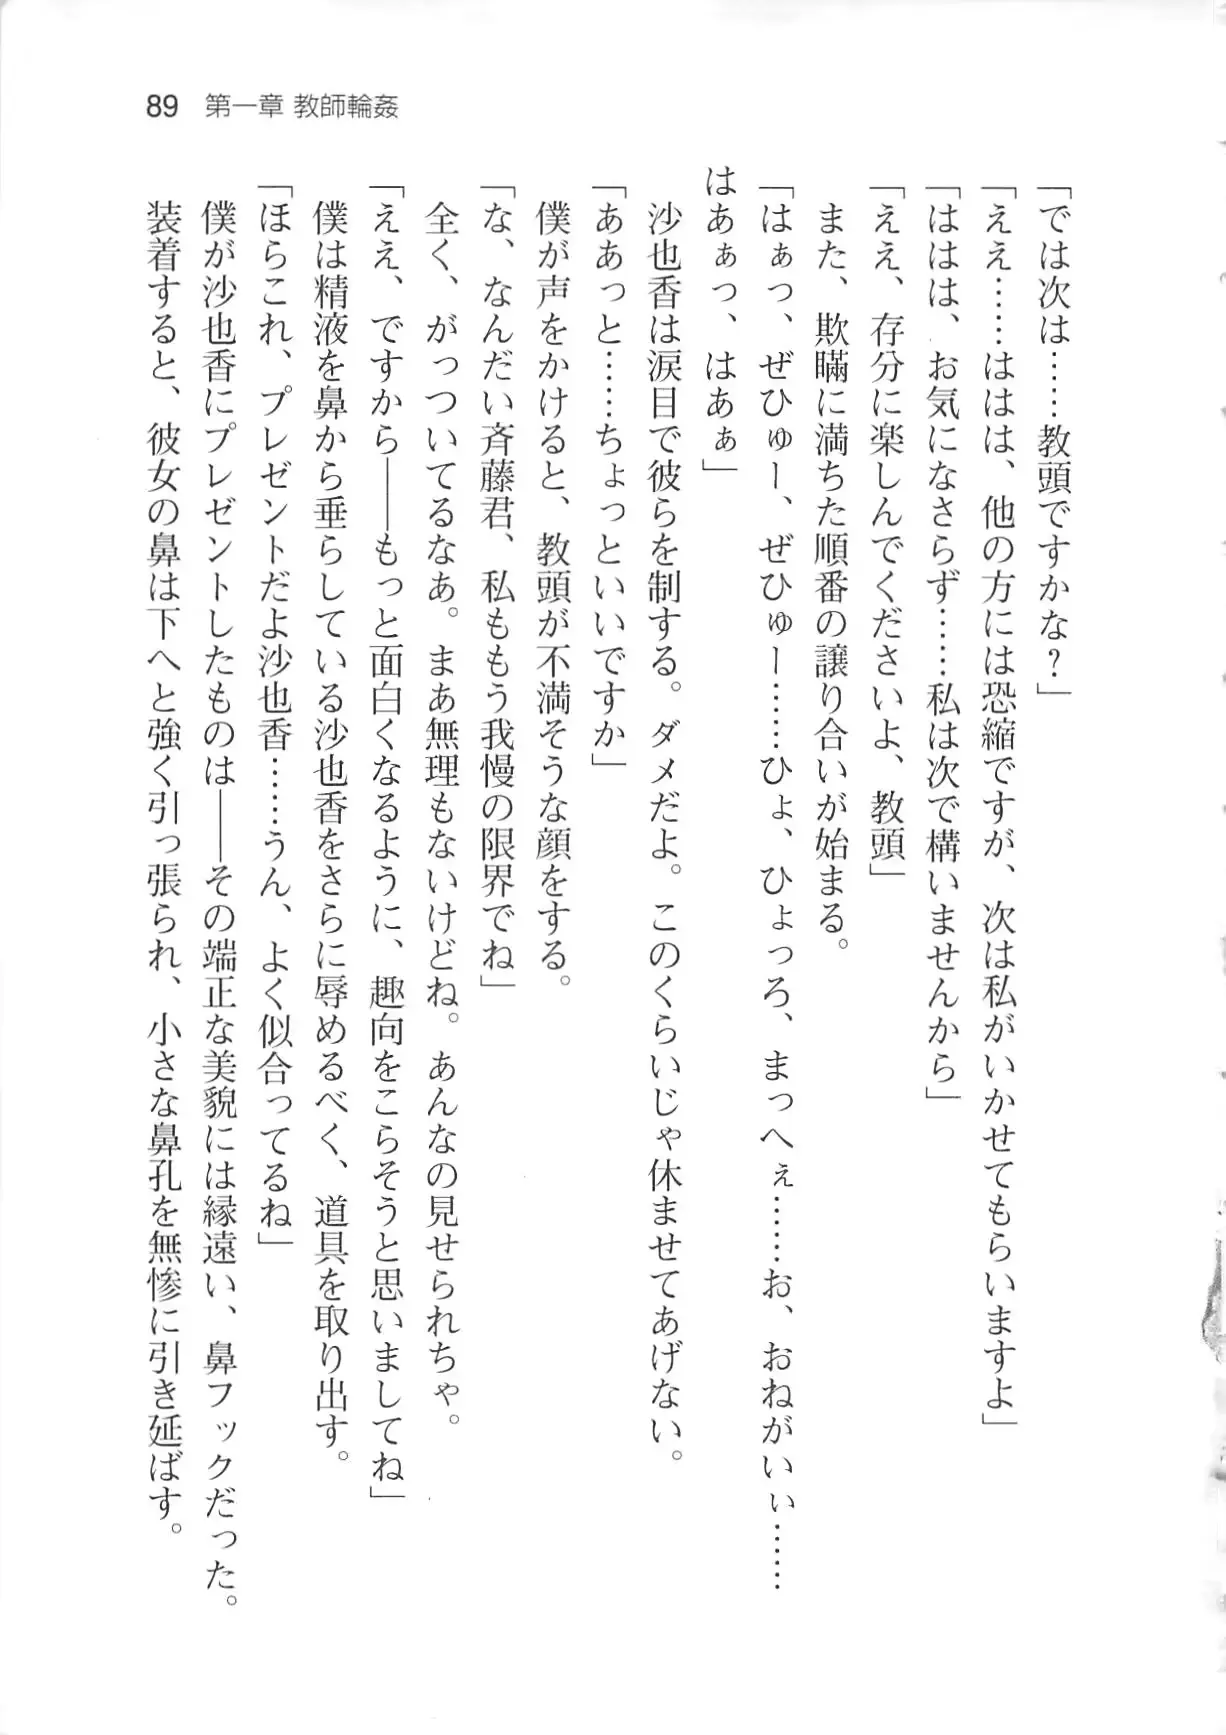 89 第一章 教師輪姦
「では次は……教頭ですかな?」
「ええ……ははは、他の方には恐縮ですが、次は私がいかせてもらいますよ」
「ははは、お気になさらず……私は次で構いませんから」
「ええ、存分に楽しんでくださいよ、教頭」
また、欺瞞に満ちた順番の譲り合いが始まる。
「はぁっ、ぜひゅー、ぜひゅー……ひょ、ひょっろ、まっへぇ……お、おねがいぃ……
はあぁっ、はあぁ」
沙也香は涙目で彼らを制する。ダメだよ。このくらいじゃ休ませてあげない。
「ああっと……ちょっといいですか」
僕が声をかけると、教頭が不満そうな顔をする。
「な、なんだい斉藤君、私ももう我慢の限界でね」
全く、がっついてるなあ。まあ無理もないけどね。あんなの見せられちゃ。
「ええ、ですから――もっと面白くなるように、趣向をこらそうと思いましてね」
僕は精液を鼻から垂らしている沙也香をさらに辱めるべく、道具を取り出す。
「ほらこれ、プレゼントだよ沙也香……うん、よく似合ってるね」
僕が沙也香にプレゼントしたものは――その端正な美貌には縁遠い、鼻フックだった。
装着すると、彼女の鼻は下へと強く引っ張られ、小さな鼻孔を無惨に引き延ばす。